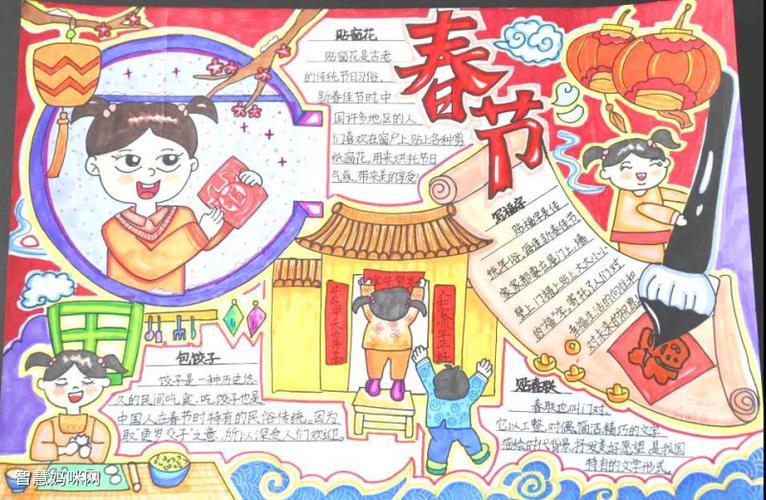 春节
贴窗花
贴窗花是古老
的传统节日习俗,
新春佳节时,中
国许多地区的人
们喜欢在窗户上贴上各种剪
纸窗花,用来烘托节日
气氛,带来美的享受!
写福字
贴福字是传
统年俗,每逢新春佳节,
家家都要在屋门上、墙
壁上、门楣上贴上大大小小
的"福"字。寄托了人们对
幸福生活的向往和
对未来的祝愿
福
人和家顺年年好
包饺子
饺子是一种历史悠
久的民间吃食,吃饺子也是
中国人在春节时特有的民俗传统。因为
取"更岁交子"之意,所以深受人们欢迎。
贴春联
春联也叫门对,
它以工整、对偶、简洁、精巧的文字
描绘时代背景、抒发美好愿望,是我国
特有的文学形式。
智慧妈咪网